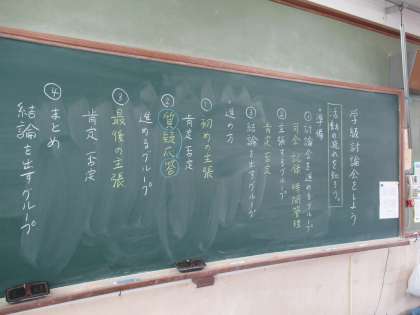 学級討論会をしよう
活動の流れを知ろう。
・準備
①討論会を進めるグループ
司会 記録 時間管理
②主張するグループ
肯定 否定
③結論を出すグループ
・進め方
①初めの主張
肯定 否定
②質疑応答
進めるグループ
③最後の主張
肯定 否定
④まとめ
結論を出すグループ